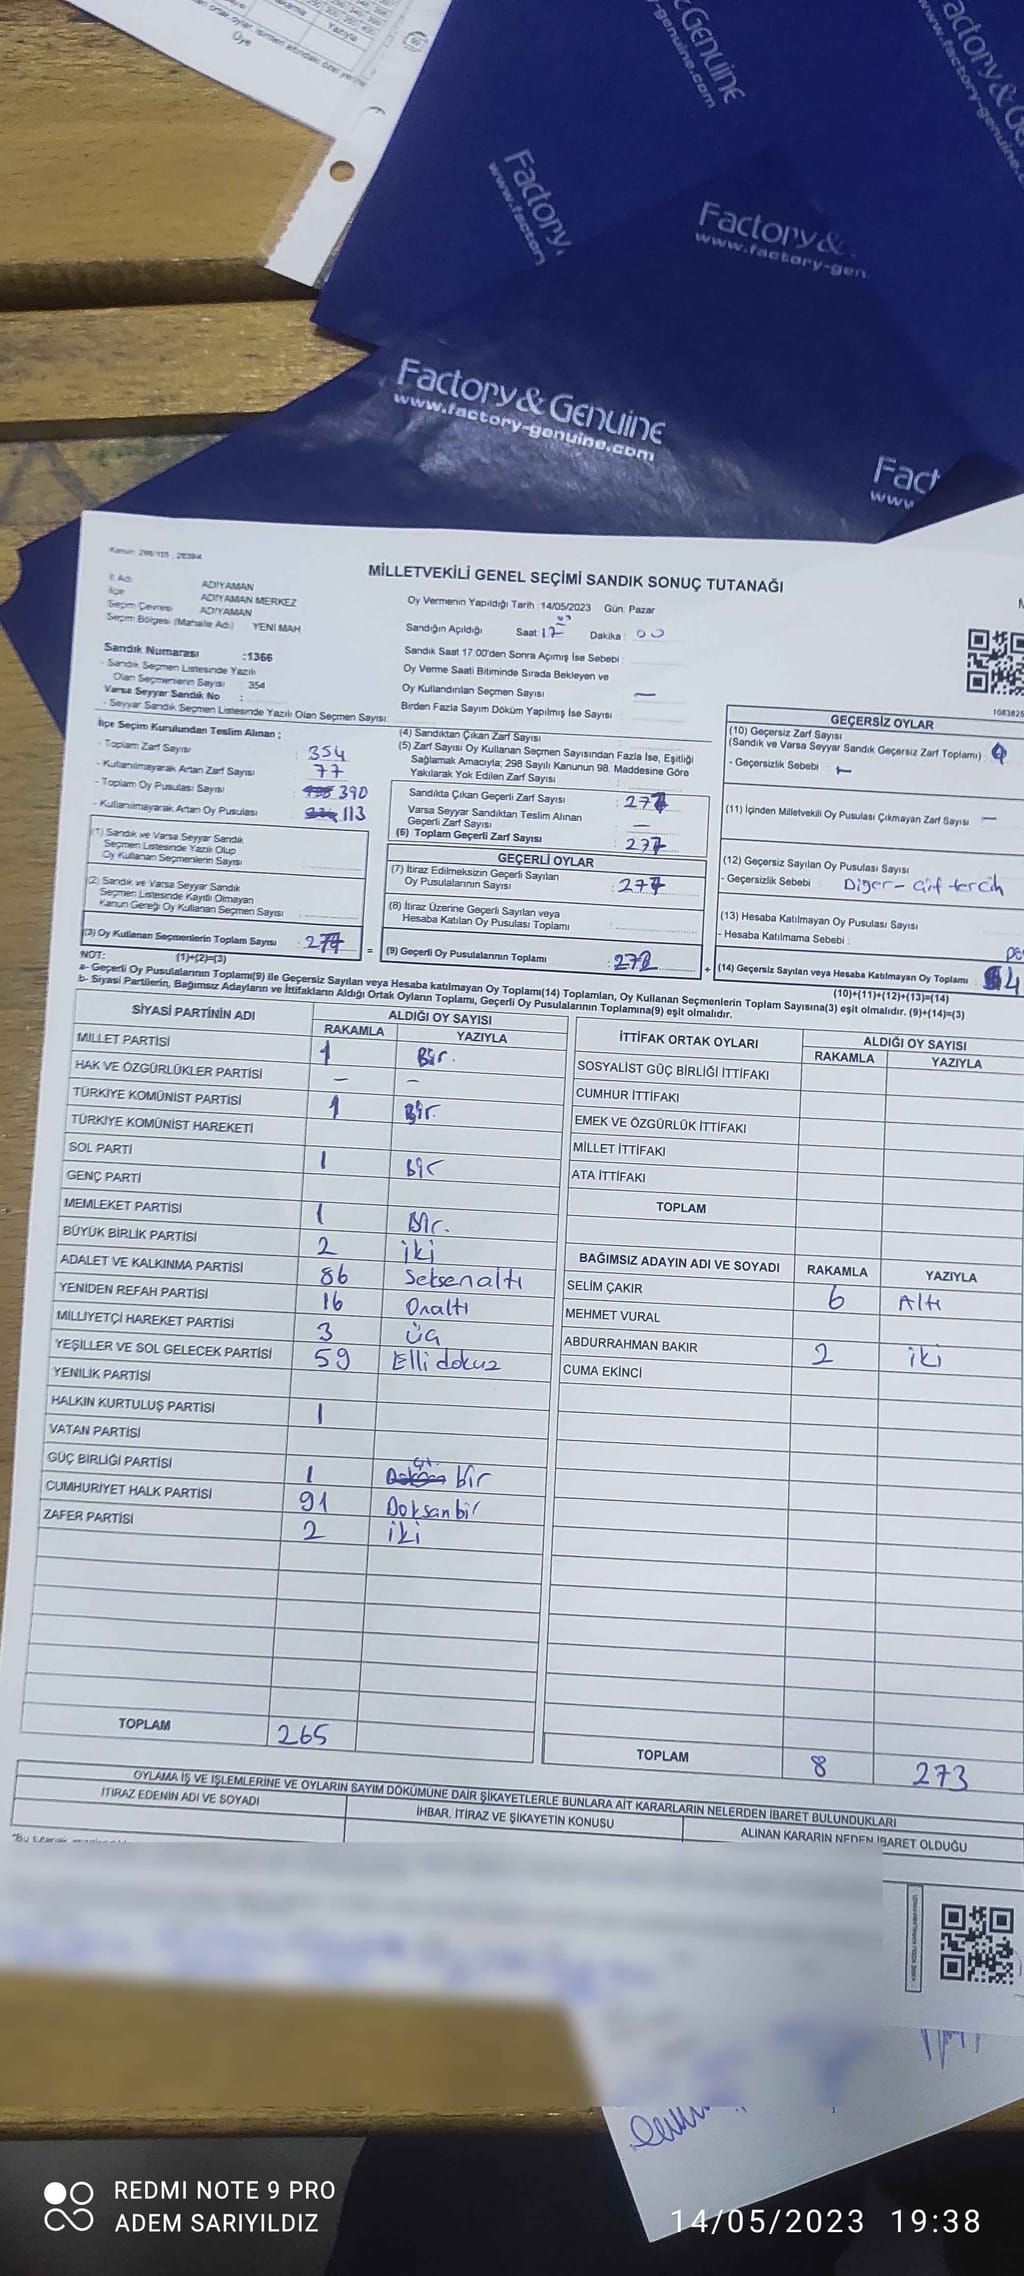 Üye
Factory & Genuine
www.factory-genuine.com
MİLLETVEKİLİ GENEL SEÇİMİ SANDIK SONUÇ TUTANAĞI
İl Adı ADIYAMAN
İlçe ADIYAMAN MERKEZ
Seçim Çevresi ADIYAMAN
Seçim Bölgesi (Mahalle Adı) YENİ MAH
Oy Vermenin Yapıldığı Tarih : 14/05/2023 Gün: Pazar
Sandığın Açıldığı Saat 17 Dakika : 00
Sandık Saat 17:00'den Sonra Açımış İse Sebebi :
Oy Verme Saati Bitiminde Sırada Bekleyen ve
Oy Kullandırılan Seçmen Sayısı —
Birden Fazla Sayım Döküm Yapılmış İse Sayısı :
Sandık Numarası :1366
- Sandık Seçmen Listesinde Yazılı
Olan Seçmenlerin Sayısı : 354
Varsa Seyyar Sandık No :
- Seyyar Sandık Seçmen Listesinde Yazılı Olan Seçmen Sayısı:
İlçe Seçim Kurulundan Teslim Alınan ;
- Toplam Zarf Sayısı : 354
- Kullanılmayarak Artan Zarf Sayısı : 77
- Toplam Oy Pusulası Sayısı : 390
- Kullanılmayarak Artan Oy Pusulası : 113
(1) Sandık ve Varsa Seyyar Sandık
Seçmen Listesinde Yazılı Olup
Oy Kullanan Seçmenlerin Sayısı
(2) Sandık ve Varsa Seyyar Sandık
Seçmen Listesinde Kayıtlı Olmayan
Kanun Gereği Oy Kullanan Seçmen Sayısı :
(3) Oy Kullanan Seçmenlerin Toplam Sayısı : 277
(1)+(2)=(3)
(4) Sandıktan Çıkan Zarf Sayısı
(5) Zarf Sayısı Oy Kullanan Seçmen Sayısından Fazla İse, Eşitliği
Sağlamak Amacıyla; 298 Sayılı Kanunun 98. Maddesine Göre
Yakılarak Yok Edilen Zarf Sayısı
Sandıkta Çıkan Geçerli Zarf Sayısı : 277
Varsa Seyyar Sandıktan Teslim Alınan
Geçerli Zarf Sayısı —
(6) Toplam Geçerli Zarf Sayısı : 277
GEÇERLİ OYLAR
(7) İtiraz Edilmeksizin Geçerli Sayılan
Oy Pusulalarının Sayısı : 277
(8) İtiraz Üzerine Geçerli Sayılan veya
Hesaba Katılan Oy Pusulası Toplamı :
= (9) Geçerli Oy Pusulalarının Toplamı :
GEÇERSİZ OYLAR
(10) Geçersiz Zarf Sayısı
(Sandık ve Varsa Seyyar Sandık Geçersiz Zarf Toplamı)
- Geçersizlik Sebebi :
(11) İçinden Milletvekili Oy Pusulası Çıkmayan Zarf Sayısı —
(12) Geçersiz Sayılan Oy Pusulası Sayısı
- Geçersizlik Sebebi : Diğer - çift tercih
(13) Hesaba Katılmayan Oy Pusulası Sayısı :
- Hesaba Katılmama Sebebi :
+ (14) Geçersiz Sayılan veya Hesaba Katılmayan Oy Toplamı : 4
(10)+(11)+(12)+(13)=(14)
NOT:
a- Geçerli Oy Pusulalarının Toplamı(9) ile Geçersiz Sayılan veya Hesaba katılmayan Oy Toplamı(14) Toplamları, Oy Kullanan Seçmenlerin Toplam Sayısına(3) eşit olmalıdır. (9)+(14)=(3)
b- Siyasi Partilerin, Bağımsız Adayların ve İttifakların Aldığı Ortak Oyların Toplamı, Geçerli Oy Pusulalarının Toplamına(9) eşit olmalıdır.
SİYASİ PARTİNİN ADI ALDIĞI OY SAYISI
RAKAMLA YAZIYLA
MİLLET PARTİSİ 1 Bir.
HAK VE ÖZGÜRLÜKLER PARTİSİ — —
TÜRKİYE KOMÜNİST PARTİSİ 1 Bir.
TÜRKİYE KOMÜNİST HAREKETİ
SOL PARTİ 1 Bir
GENÇ PARTİ
MEMLEKET PARTİSİ 1 Bir.
BÜYÜK BİRLİK PARTİSİ 2 iki
ADALET VE KALKINMA PARTİSİ 86 Seksenaltı
YENİDEN REFAH PARTİSİ 16 Onaltı
MİLLİYETÇİ HAREKET PARTİSİ 3 üç
YEŞİLLER VE SOL GELECEK PARTİSİ 59 Elli dokuz
YENİLİK PARTİSİ
HALKIN KURTULUŞ PARTİSİ 1
VATAN PARTİSİ
GÜÇ BİRLİĞİ PARTİSİ 1 bir
CUMHURİYET HALK PARTİSİ 91 Doksanbir
ZAFER PARTİSİ 2 iki
TOPLAM 265
İTTİFAK ORTAK OYLARI ALDIĞI OY SAYISI
RAKAMLA YAZIYLA
SOSYALİST GÜÇ BİRLİĞİ İTTİFAKI
CUMHUR İTTİFAKI
EMEK VE ÖZGÜRLÜK İTTİFAKI
MİLLET İTTİFAKI
ATA İTTİFAKI
TOPLAM
BAĞIMSIZ ADAYIN ADI VE SOYADI RAKAMLA YAZIYLA
SELİM ÇAKIR 6 Altı
MEHMET VURAL
ABDURRAHMAN BAKIR 2 iki
CUMA EKİNCİ
TOPLAM 8 273
OYLAMA İŞ VE İŞLEMLERİNE VE OYLARIN SAYIM DÖKÜMÜNE DAİR ŞİKAYETLERLE BUNLARA AİT KARARLARIN NELERDEN İBARET BULUNDUKLARI
İTİRAZ EDENİN ADI VE SOYADI
İHBAR, İTİRAZ VE ŞİKAYETİN KONUSU
ALINAN KARARIN NEDEN İBARET OLDUĞU
REDMI NOTE 9 PRO
ADEM SARIYILDIZ
14/05/2023 19:38